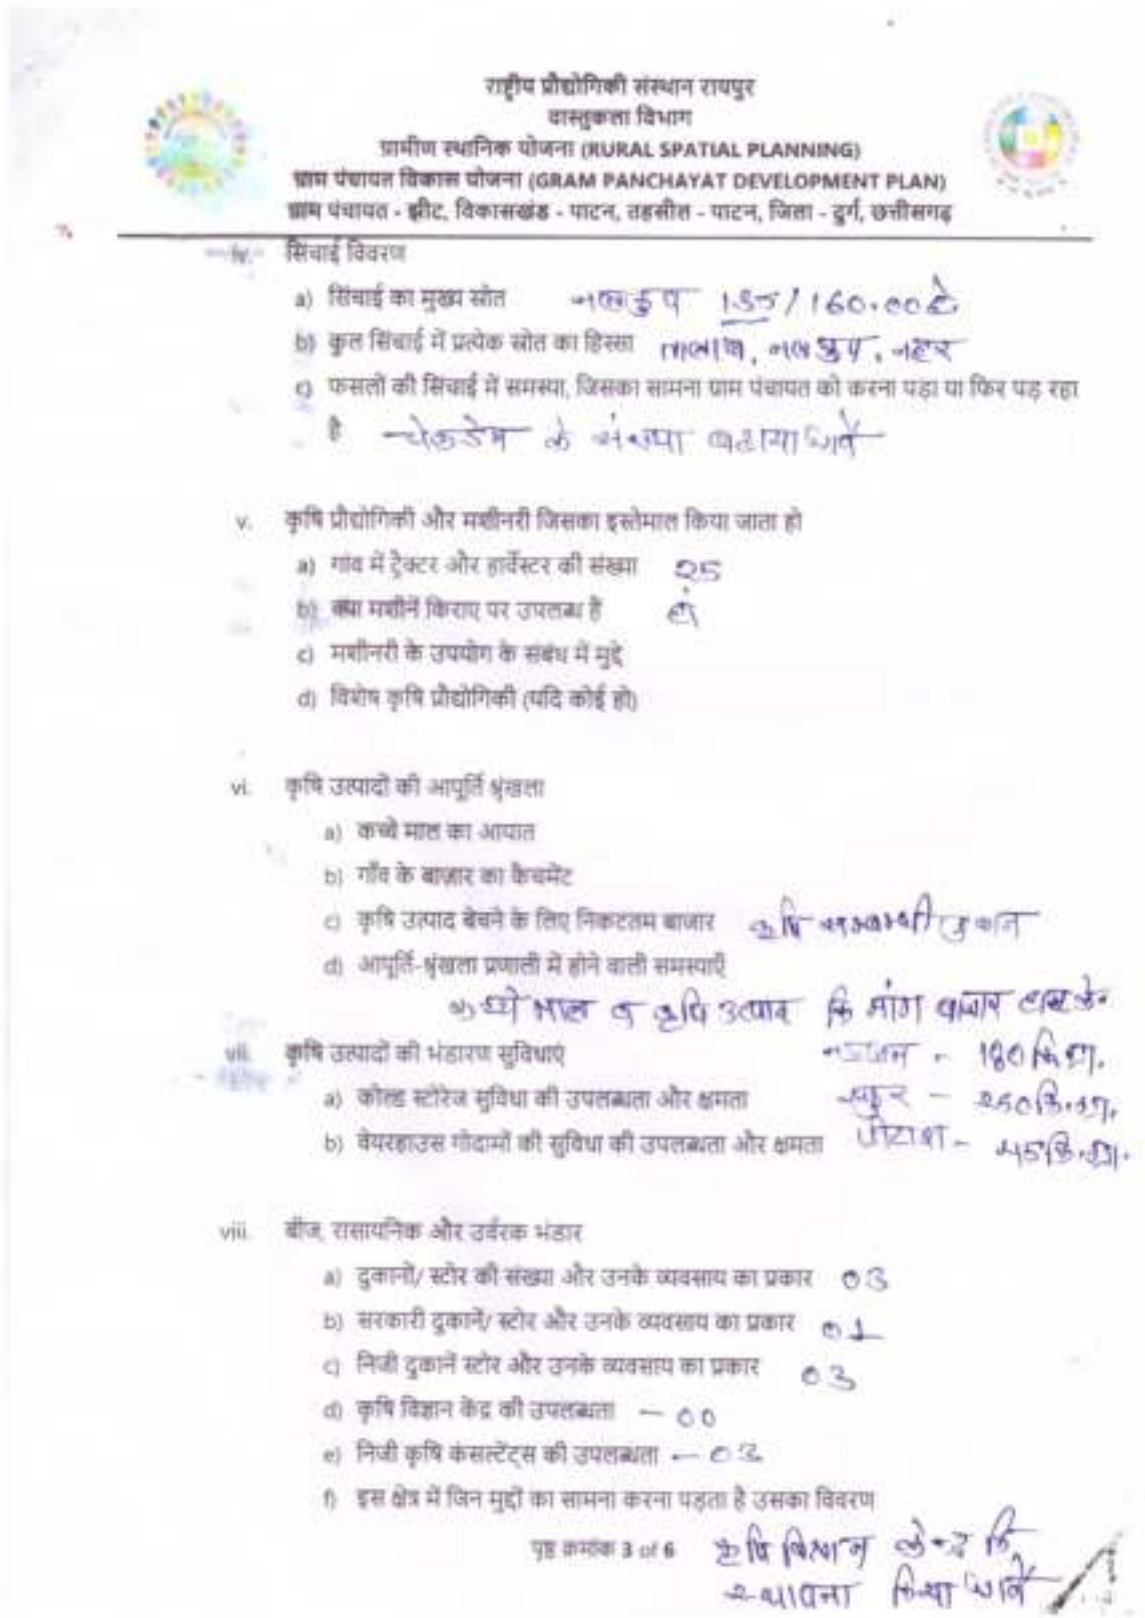 राष्ट्रीय प्रौद्योगिकी संस्थान रायपुर
वास्तुकला विभाग
ग्रामीण स्थानिक योजना (RURAL SPATIAL PLANNING)
ग्राम पंचायत विकास योजना (GRAM PANCHAYAT DEVELOPMENT PLAN)
ग्राम पंचायत - झीट, विकासखंड - पाटन, तहसील - पाटन, जिला - दुर्ग, छत्तीसगढ़
iv. सिंचाई विवरण
a) सिंचाई का मुख्य स्रोत नलकुप /160.00 हे
b) कुल सिंचाई में प्रत्येक स्रोत का हिस्सा तालाब, नलकुप, नहर
c) फसलों की सिंचाई में समस्या, जिसका सामना ग्राम पंचायत को करना पड़ा या फिर पड़ रहा
है चेकडेम के संख्या बढाया जावें
v. कृषि प्रौद्योगिकी और मशीनरी जिसका इस्तेमाल किया जाता हो
a) गांव में ट्रैक्टर और हार्वेस्टर की संख्या 25
b) क्या मशीनें किराए पर उपलब्ध हैं हां
c) मशीनरी के उपयोग के संबंध में मुद्दे
d) विशेष कृषि प्रौद्योगिकी (यदि कोई हो)
vi. कृषि उत्पादों की आपूर्ति श्रृंखला
a) कच्चे माल का आयात
b) गाँव के बाज़ार का कैचमेंट
c) कृषि उत्पाद बेचने के लिए निकटतम बाजार कृषि दुकान
d) आपूर्ति-श्रृंखला प्रणाली में होने वाली समस्याएँ
कच्चे माल व कृषि उत्पाद कि मांग बाजार
vii. कृषि उत्पादों की भंडारण सुविधाएं - 180 कि.ग्रा.
a) कोल्ड स्टोरेज सुविधा की उपलब्धता और क्षमता - 250 कि.ग्रा.
b) वेयरहाउस गोदामों की सुविधा की उपलब्धता और क्षमता पोटाश - 45 कि.ग्रा.
viii. बीज, रासायनिक और उर्वरक भंडार
a) दुकानों/ स्टोर की संख्या और उनके व्यवसाय का प्रकार 03
b) सरकारी दुकानें/ स्टोर और उनके व्यवसाय का प्रकार 01
c) निजी दुकानें स्टोर और उनके व्यवसाय का प्रकार 03
d) कृषि विज्ञान केंद्र की उपलब्धता - 00
e) निजी कृषि कंसल्टेंट्स की उपलब्धता - 03
f) इस क्षेत्र में जिन मुद्दों का सामना करना पड़ता है उसका विवरण
पृष्ठ क्रमांक 3 of 6 कृषि विज्ञान केन्द्र कि
स्थापना किया जावें